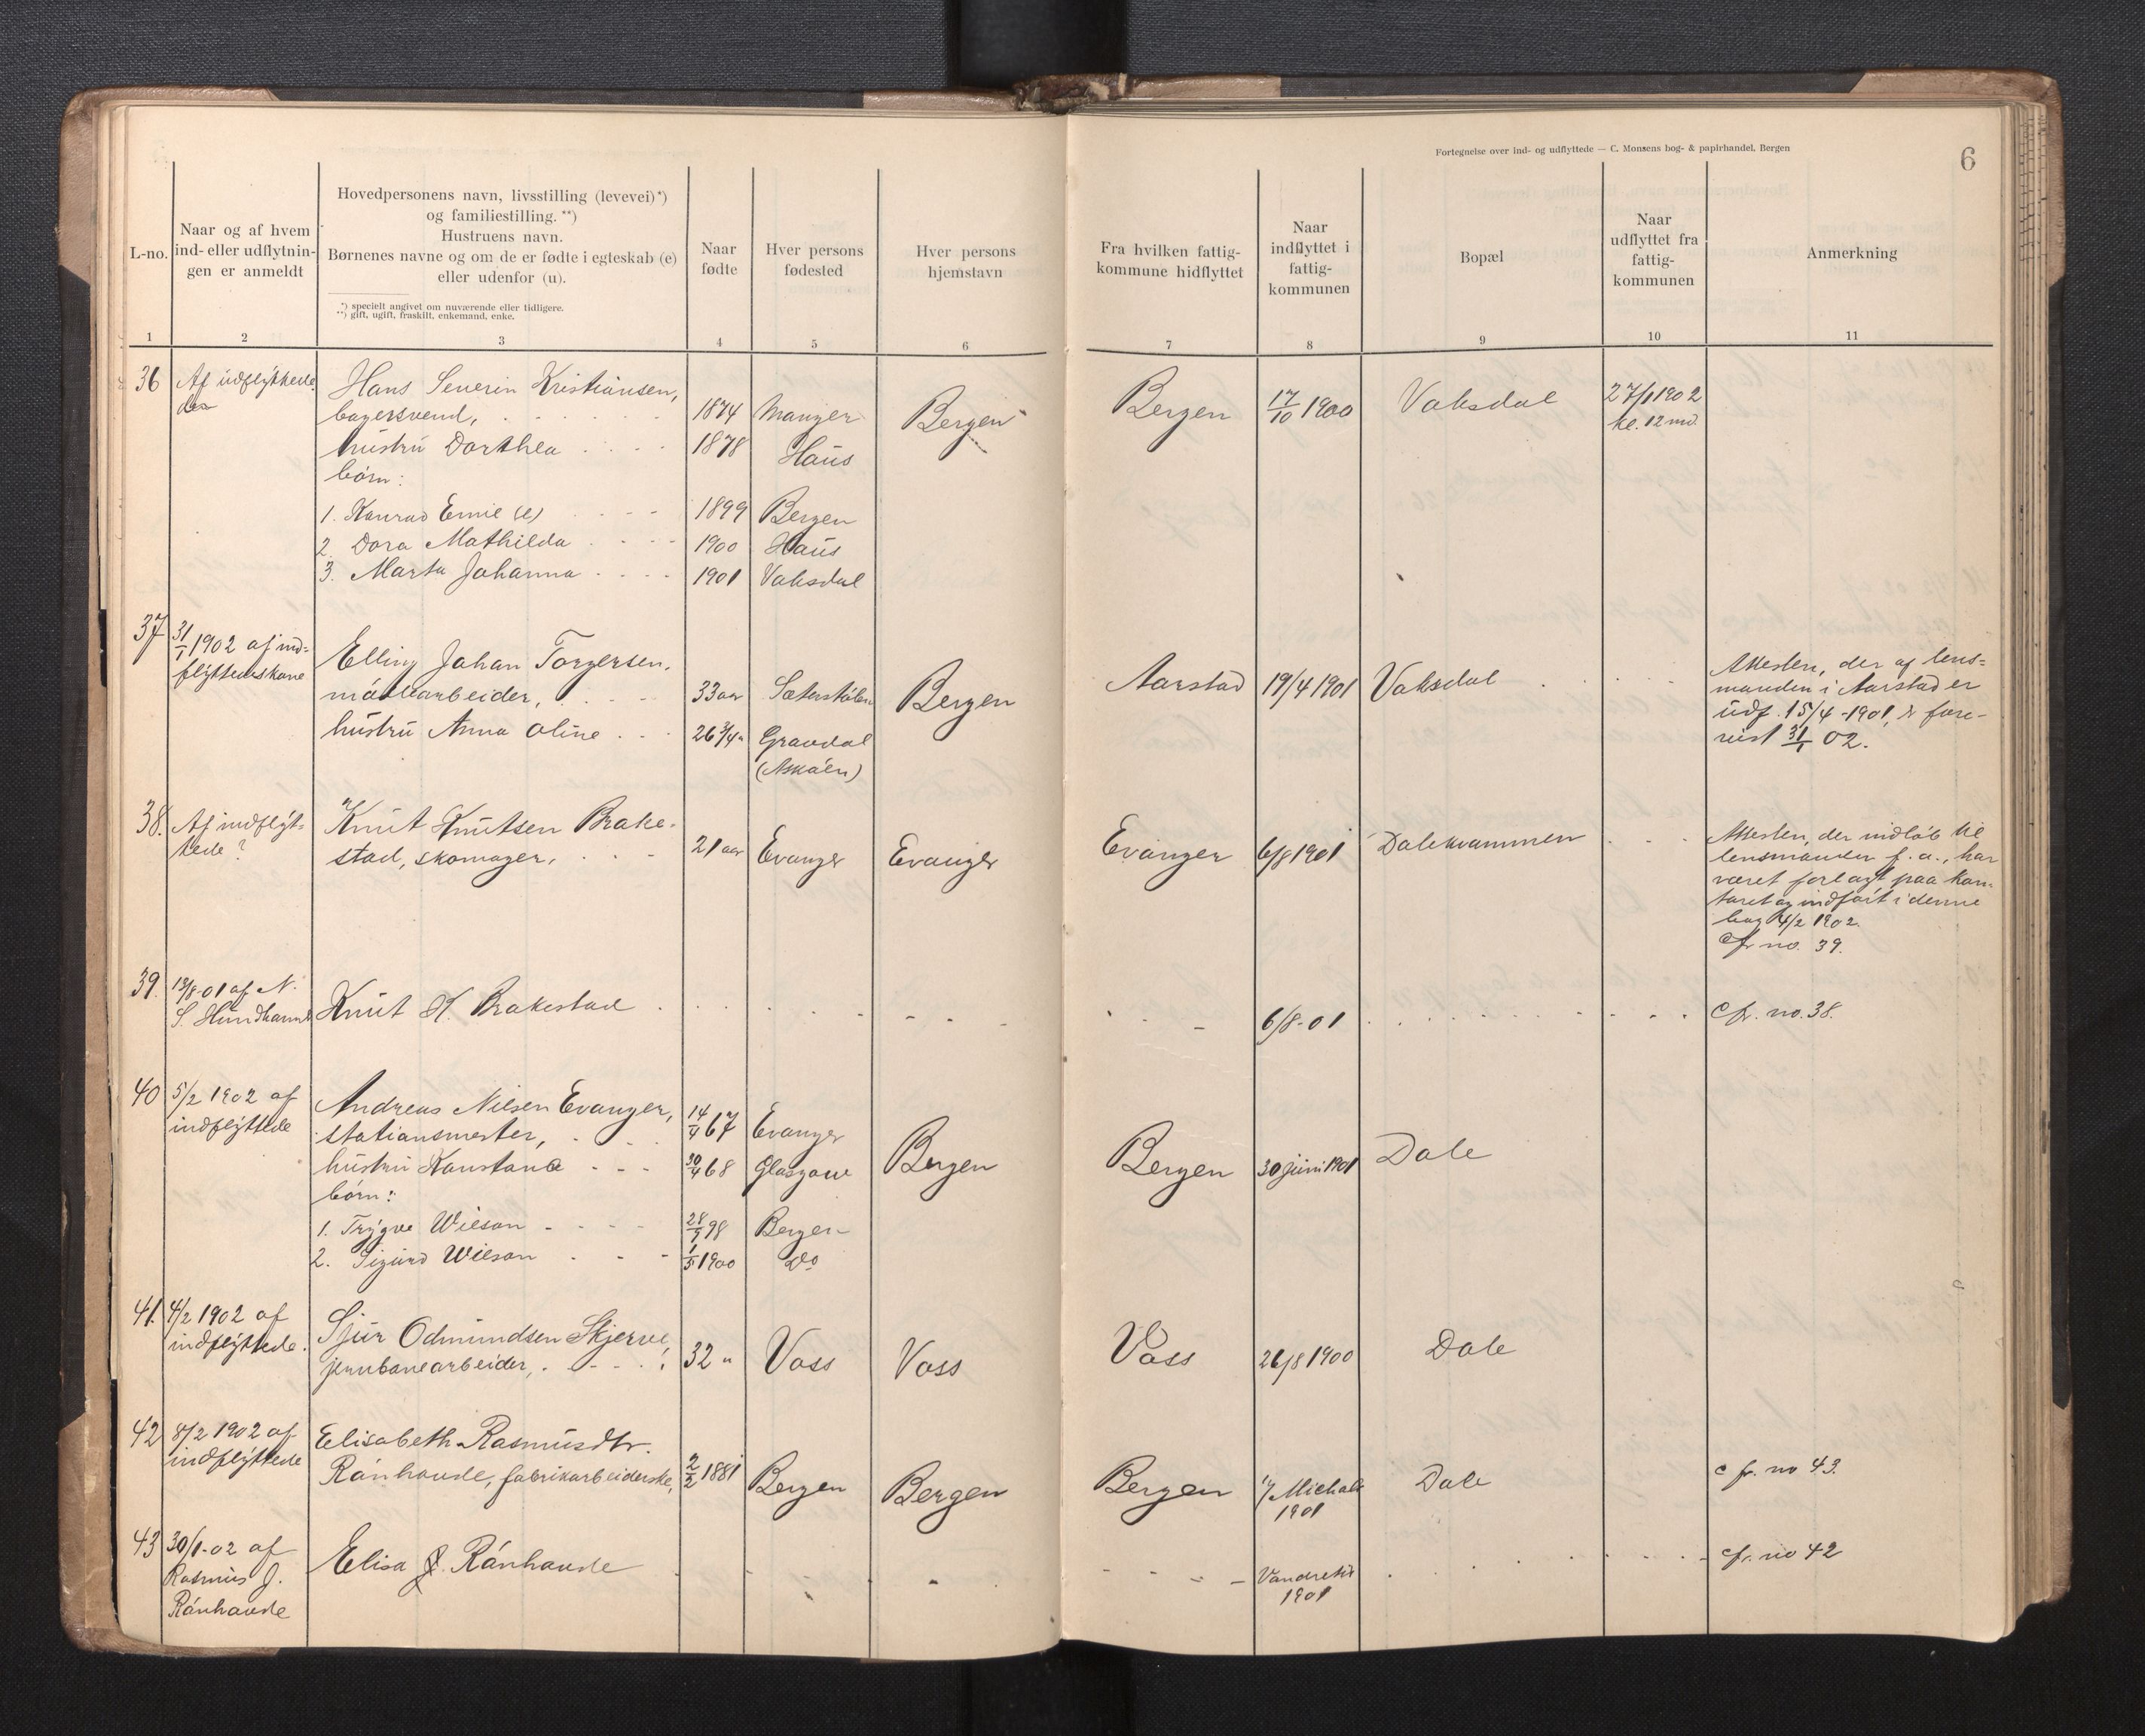 Fortegnelse over ind- og udflyttede — C. Monsens bog- & papirhandel, Bergen
6
L-no.
Naar og af hvem
ind- eller udflytnin-
gen er anmeldt
Hovedpersonens navn, livsstilling (levevei)*)
og familiestilling. **)
Hustruens navn.
Børnenes navne og om de er fødte i egteskab (e)
eller udenfor (u).
*) specielt angivet om nuværende eller tidligere.
**) gift, ugift, fraskilt, enkemand, enke.
Naar
fødte
Hver persons
fødested
Hver persons
hjemstavn
Fra hvilken fattig-
kommune hidflyttet
Naar
indflyttet i
fattig-
kommunen
Bopæl
Naar
udflyttet fra
fattig-
kommunen
Anmerkning
1 2 3 4 5 6 7 8 9 10 11
36 Af indflyttede
Hans Severin Kristiansen,
bagersvend, 1874 Manger Bergen Bergen 17/10 1900 Vaksdal 27/1 1902
kl. 12 md.
hustru Dorthea 1878 Haus
børn:
1. Konrad Emil (e) 1899 Bergen
2. Dora Mathilda 1900 Haus
3. Marta Johanna 1901 Vaksdal
37 31/1 1902 af ind-
flytterens kone
Elling Johan Torgersen,
møllearbeider, 33 aar Bergen Aarstad 19/4 1901 Vaksdal
hustru Anna Oline 26 3/4 " Gravdal
(Askøen)
Attesten, der af lens-
manden i Aarstad er
udf. 15/4-1901, er fore-
vist 31/1 02.
38. Af indflyt-
tede?
Knut Knutsen Brake-
stad, skomager, 21 aar Evanger Evanger Evanger 6/8 1901 Dalekvammen
Attesten, der indløb til
lensmanden f. a., har
været forlagt paa kon-
toret og indført i denne
bog 4/2 1902.
cfr. no. 39.
39. 13/8-01 af N.
S. Hundhammer
Knut K. Brakestad 6/8-01 Cfr. no. 38.
40 5/2 1902 af
indflyttede
Andreas Nilsen Evanger,
stationsmester, 14/4 67 Evanger Bergen Bergen 30 juni 1901 Dale
hustru Konstance 30/4 68 Glasgow
børn:
1. Trygve Wilson 98 Bergen
2. Sigurd Wilson 1/5 1900 Do
41. 4/2 1902 af
indflyttede.
Sjur Odmundsen Skjerve,
jernbanearbeider, 32 " Voss Voss Voss 26/8 1900 Dale
42 8/2 1902 af
indflyttede
Elisabeth Rasmusdtr.
Rånhovde, fabrikarbeiderske, 2/2 1881 Bergen Bergen Bergen
1901 Dale cfr. no 43.
43 30/1-02 af
Rasmus J.
Rånhovde
Elisa J. Rånhovde Vandretid
1901 cfr. no 42